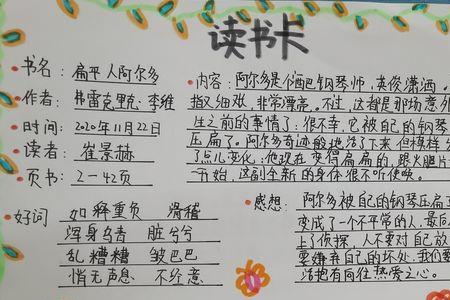 读书卡
书名：扁平人阿尔多
作者：弗雷克里克·李维
时间：2020年11月22日
读者：崔景赫
页书：2－42页
好词 如释重负 滑稽
浑身乌青 脏兮兮
乱糟糟 皱巴巴
悄无声息 不经意
内容：阿尔多是个酒吧钢琴师，英俊潇洒。
指又细又长，非常漂亮。不过，这都是那场意外
生之前的事情了：很不幸，它被自己的钢琴
压扁了。阿尔多奇迹般地活了下来但模样
了点儿变化：他现在变得扁扁的，跟火腿片
一开始，这副全新的身体很不听使唤。
感想：阿尔多被自己的钢琴压扁
变成了一个不平常的人，最后
上了侦探，人不要对自己放
要嫌弃自己的坏处，我们要
活抱有向往热爱之心。